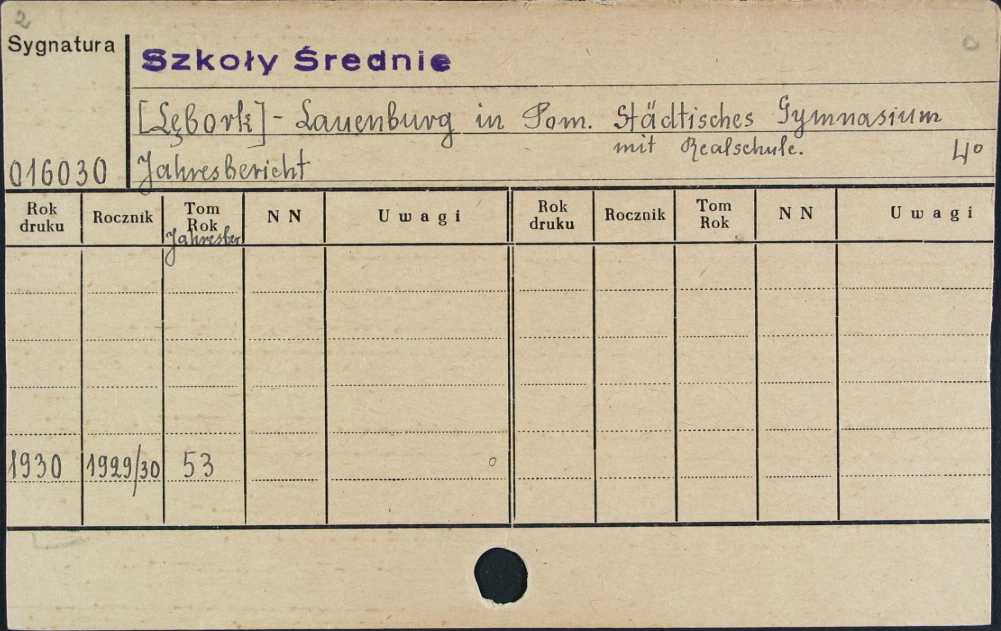 2
Sygnatura
Szkoły Średnie
[Lębork] - Lauenburg in Pom. Städtisches Gymnasium
mit Realschule. 4°
016030 Jahresbericht
Rok druku Rocznik Tom Rok N N Uwagi Rok druku Rocznik Tom Rok N N Uwagi
Jahresber
1930 1929/30 53